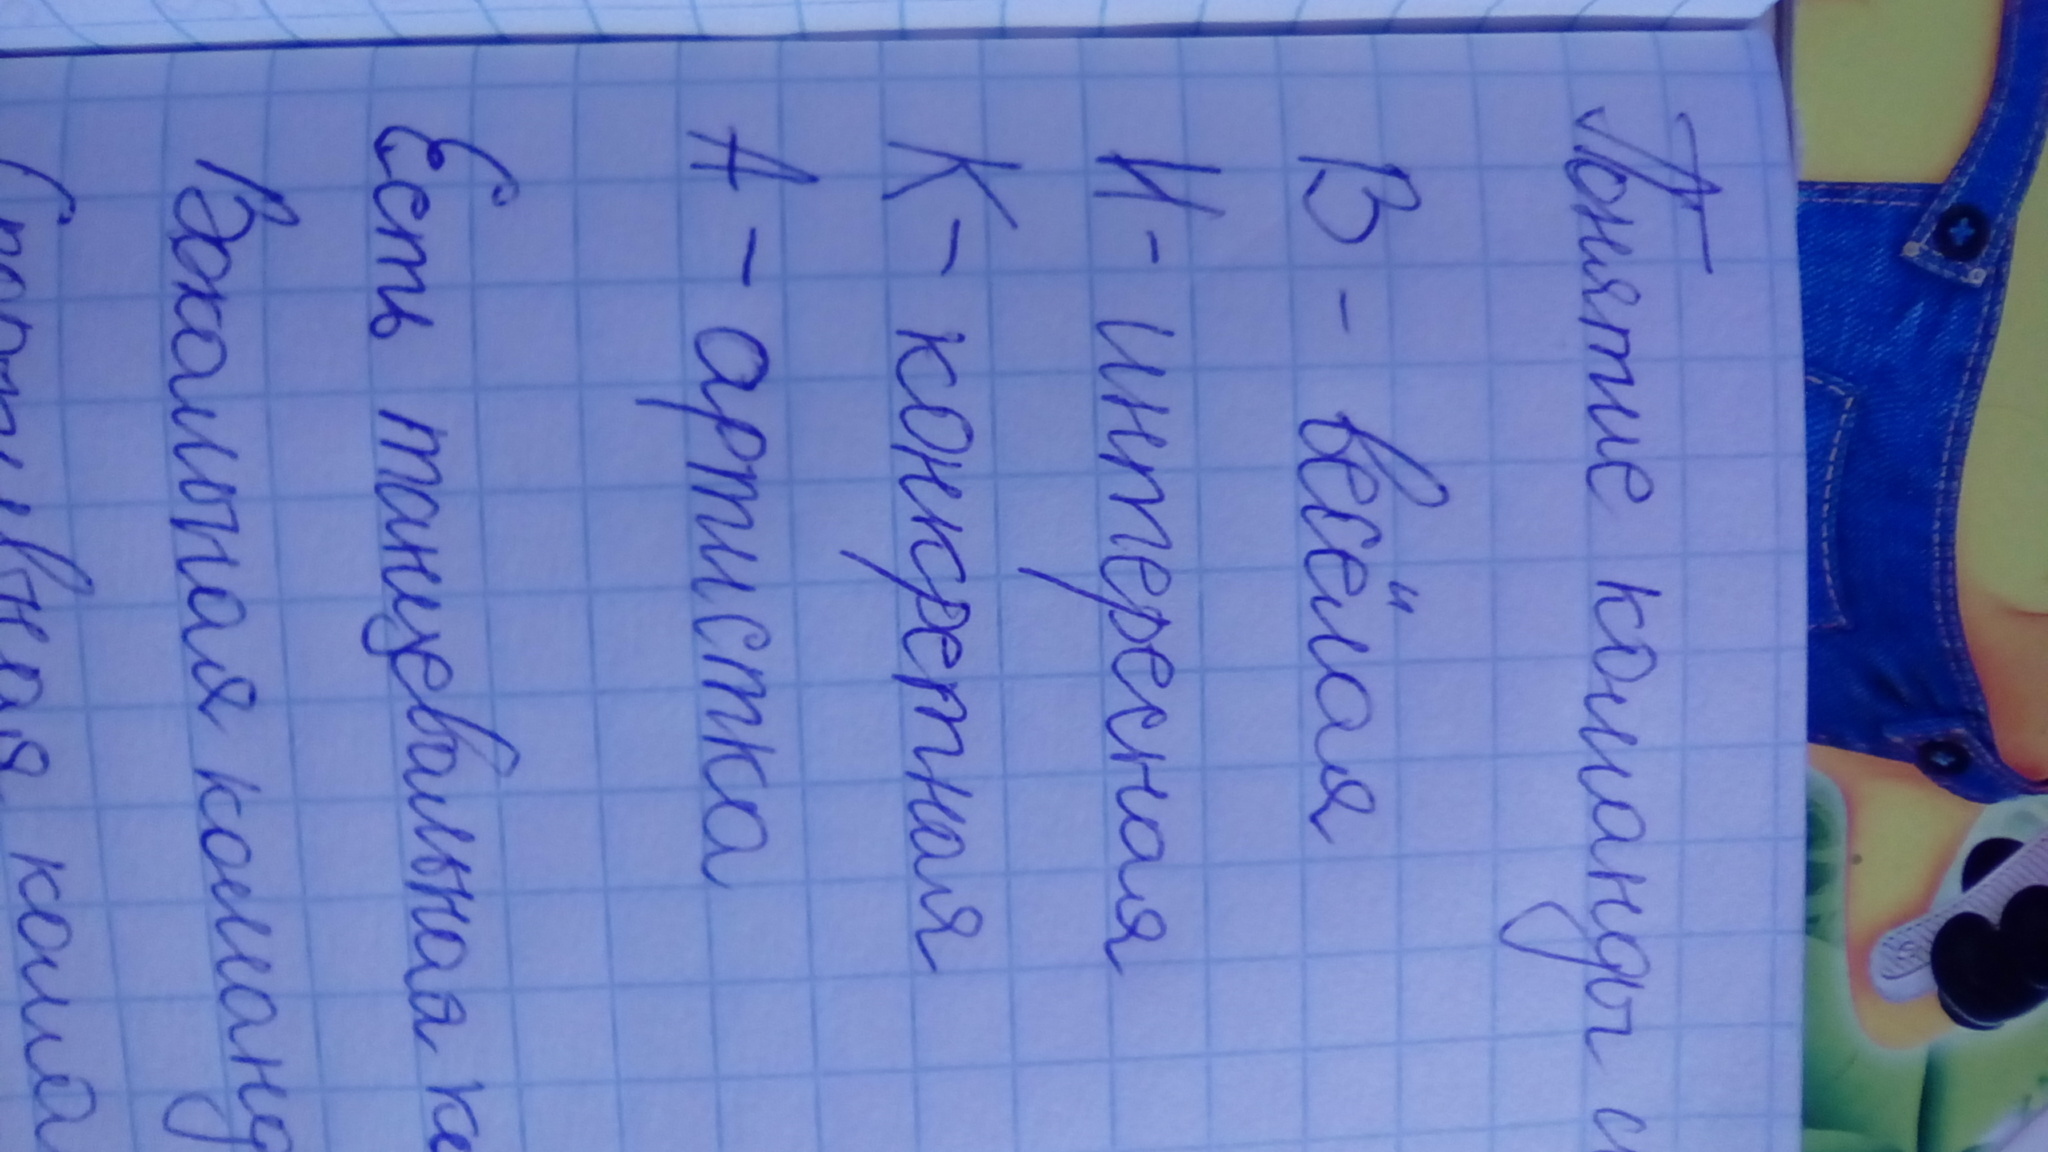 Понятие команды
В - весёлая
И - интересная
К - конкретная
А - артистка
Есть танцевальная к
Вокальная команд
Спортивная кома